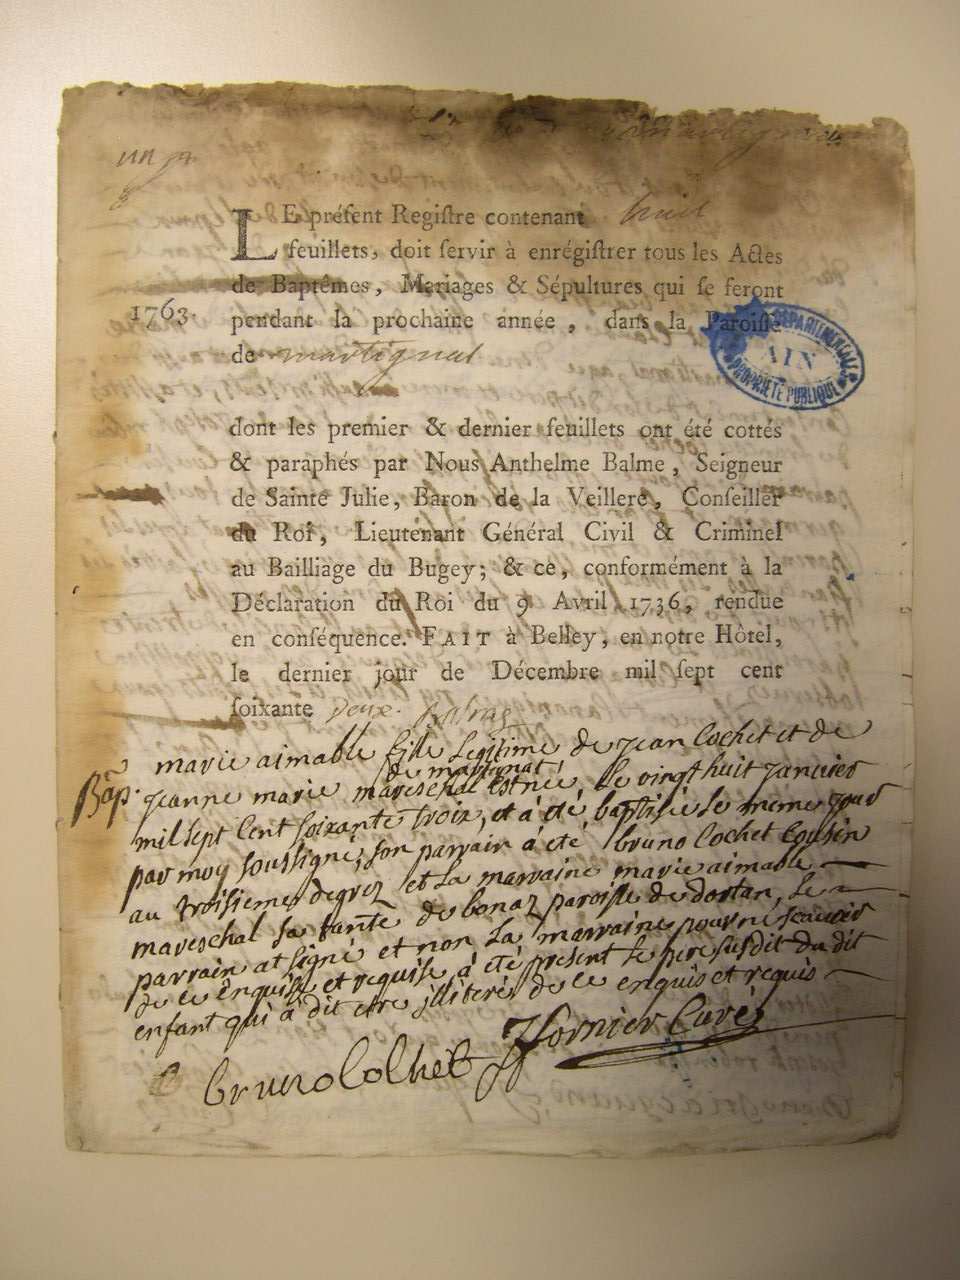 LE présent Registre contenant huit
feuillets, doit servir à enrégistrer tous les Actes
de Baptêmes, Mariages & Sépultures qui se feront
1763. pendant la prochaine année, dans la Paroisse
de martignat
DEPARTEMENTALES
AIN
PROPRIÉTÉ PUBLIQUE
dont les premier & dernier feuillets ont été cottés
& paraphés par Nous Anthelme Balme, Seigneur
de Sainte Julie, Baron de la Veillere, Conseiller
du Roi, Lieutenant Général Civil & Criminel
au Bailliage du Bugey; & ce, conformément à la
Déclaration du Roi du 9 Avril 1736, rendue
en conséquence. FAIT à Belley, en notre Hôtel,
le dernier jour de Décembre mil sept cent
soixante Deux.
marie aimable fille legitime de jean Cochet et de
de martignat
Bap. jeanne marie mareschal est née le vingt huit janvier
mil sept cent soixante troix, et à été baptisée le meme jour
par moy soussigné, son parrain à été bruno Cochet Cousin
au troisieme degrez et la marraine marie aimable
mareschal sa tante de bonaz paroisse de dortan, le
parrain at signé et non la marraine pour ne scavoir
de ce enquise et requise, à été présent le pere susdit du dit
enfant qui à dit etre illiteré de ce enquis et requis
bruno Cochet
Fornier Curé